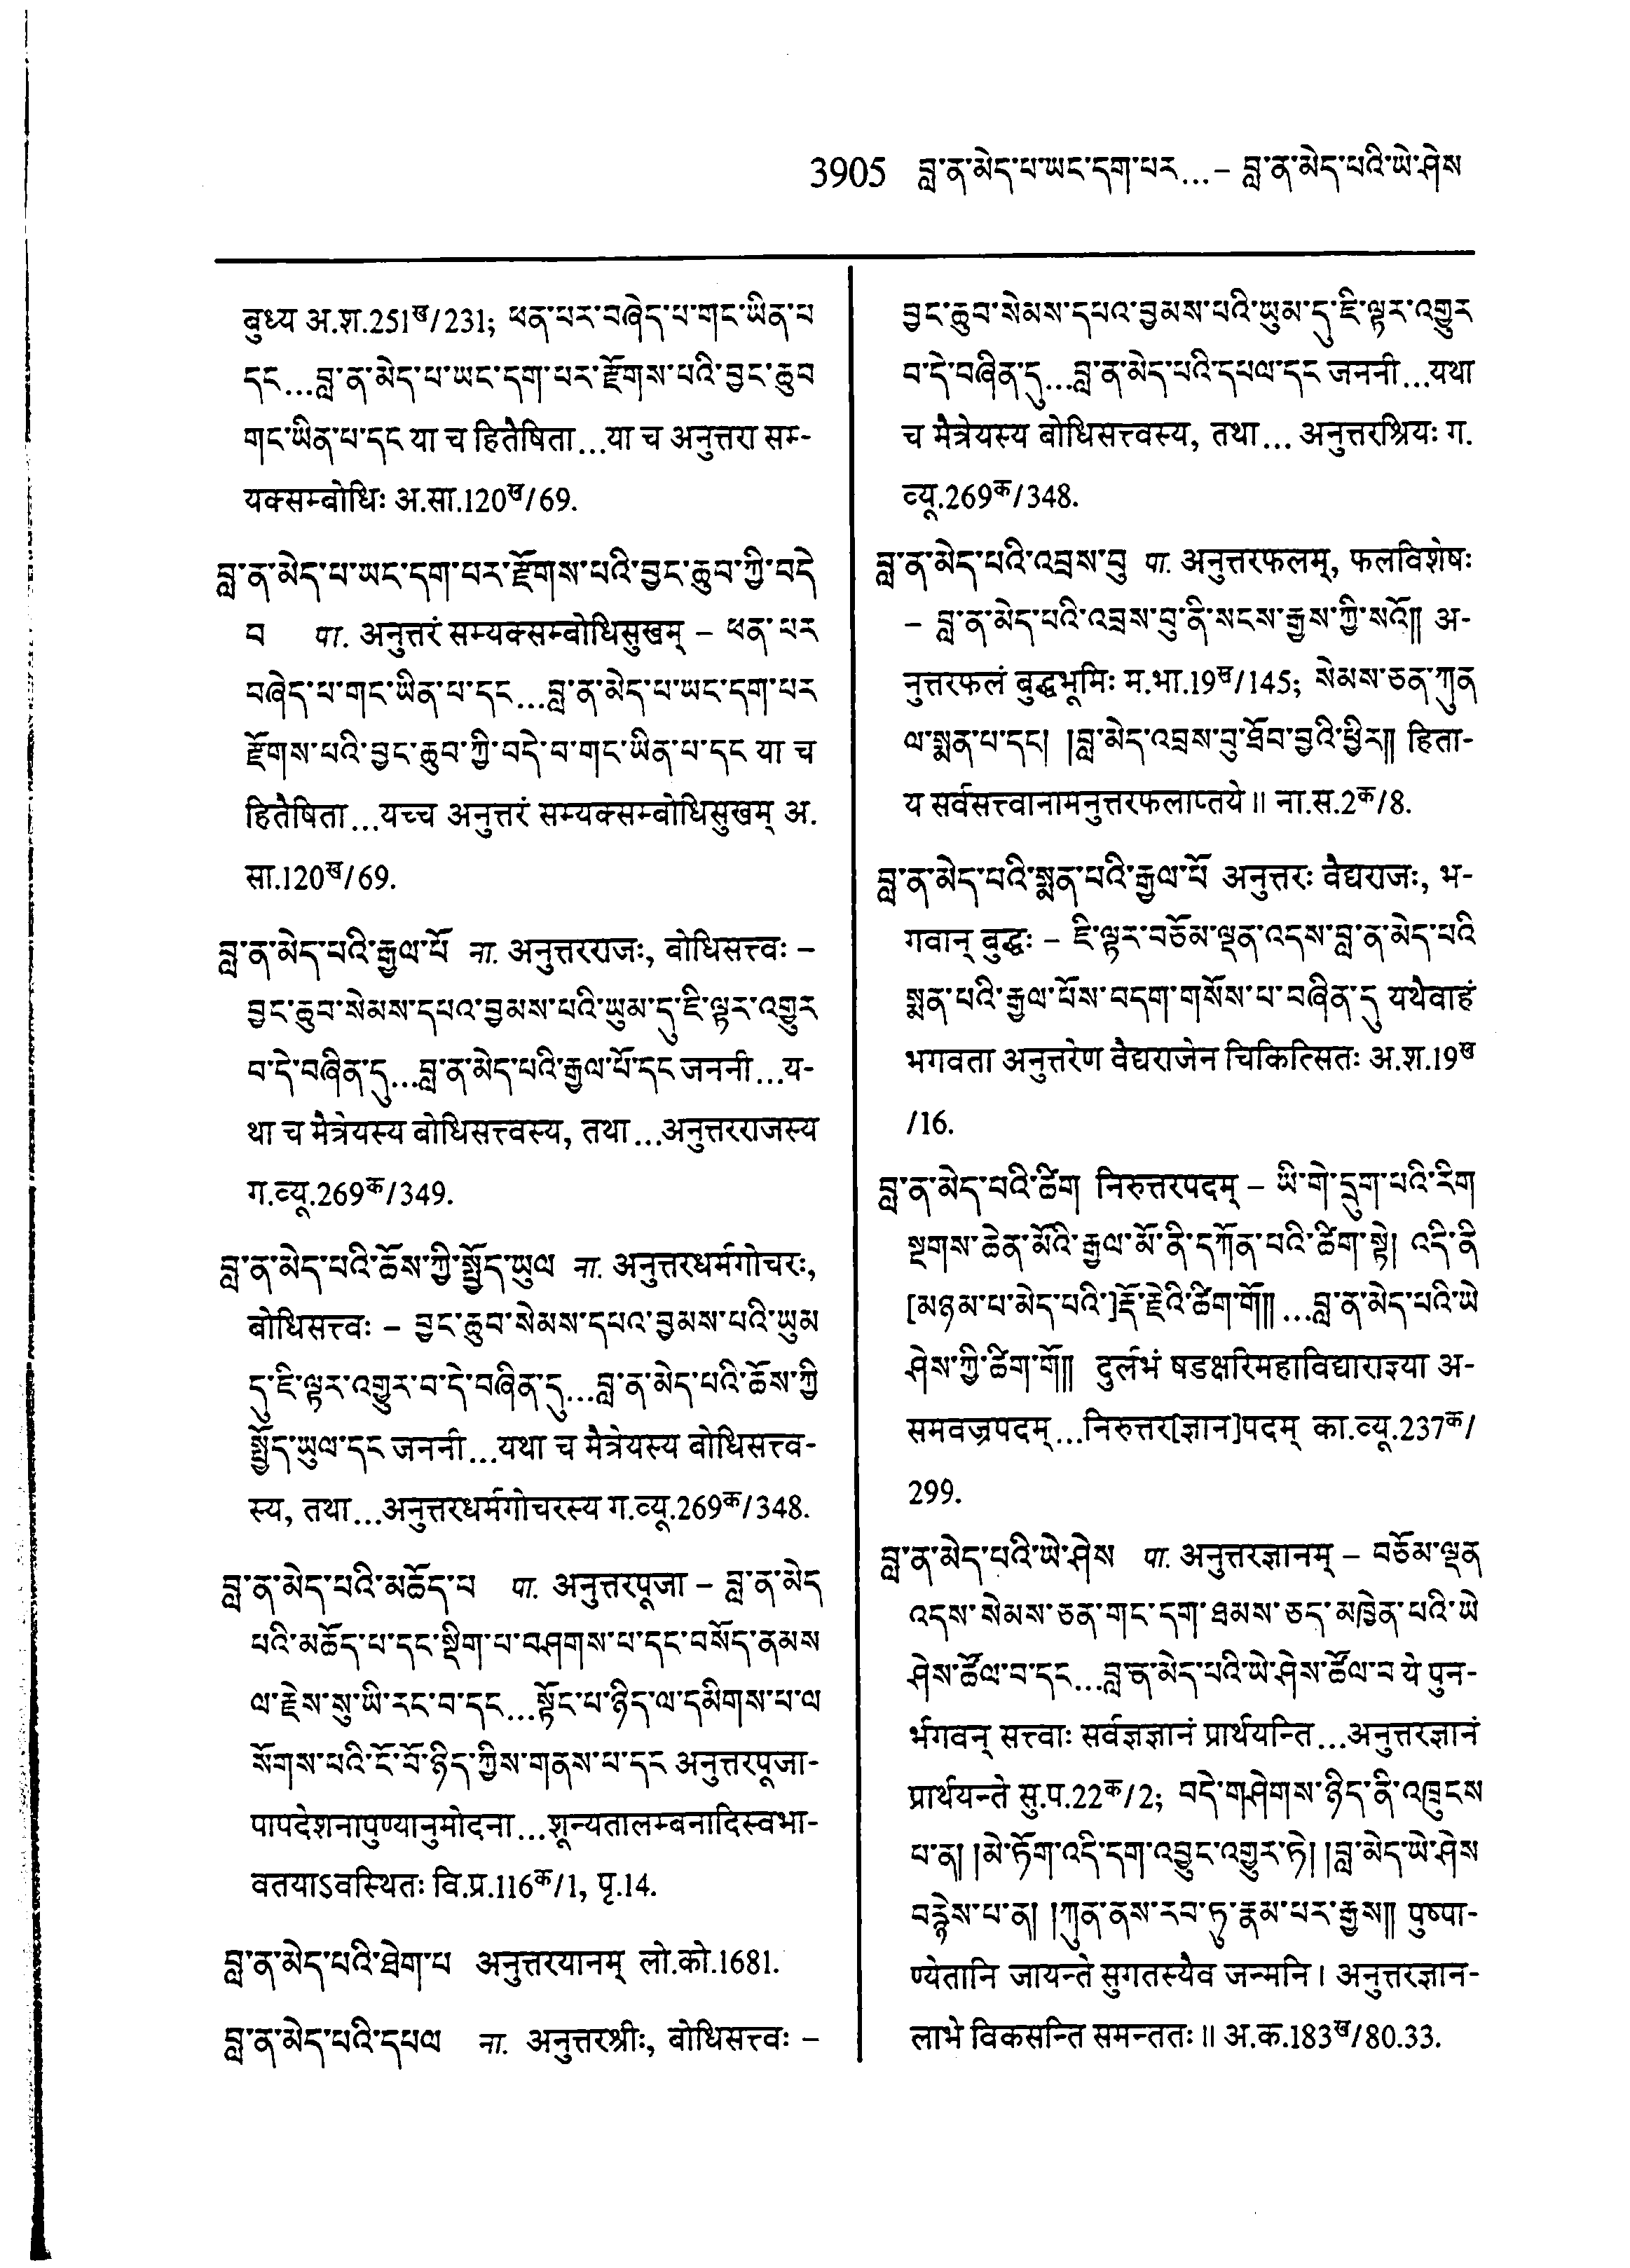 3905 བླ་ན་མེད་པ་ཡང་དག་པར...– བླ་ན་མེད་པའི་ཡེ་ཤེས
बुध्य अ.श.251ख/231; ཕན་པར་བཞེད་པ་གང་ཡིན་པ
དང...བླ་ན་མེད་པ་ཡང་དག་པར་རྫོགས་པའི་བྱང་ཆུབ
གང་ཡིན་པ་དང या च हितैषिता...या च अनुत्तरा सम्-
यक्सम्बोधिः अ.सा.120ख/69.
བླ་ན་མེད་པ་ཡང་དག་པར་རྫོགས་པའི་བྱང་ཆུབ་ཀྱི་བདེ
བ पा. अनुत्तरं सम्यक्सम्बोधिसुखम् – ཕན་པར
བཞེད་པ་གང་ཡིན་པ་དང...བླ་ན་མེད་པ་ཡང་དག་པར
རྫོགས་པའི་བྱང་ཆུབ་ཀྱི་བདེ་བ་གང་ཡིན་པ་དང या च
हितैषिता...यच्च अनुत्तरं सम्यक्सम्बोधिसुखम् अ.
सा.120ख/69.
བླ་ན་མེད་པའི་རྒྱལ་པོ ना. अनुत्तरराजः, बोधिसत्त्वः –
བྱང་ཆུབ་སེམས་དཔའ་བྱམས་པའི་ཡུམ་དུ་ཇི་ལྟར་འགྱུར
བ་དེ་བཞིན་དུ...བླ་ན་མེད་པའི་རྒྱལ་པོ་དང जननी...य-
था च मैत्रेयस्य बोधिसत्त्वस्य, तथा...अनुत्तरराजस्य
ग.व्यू.269क/349.
བླ་ན་མེད་པའི་ཆོས་ཀྱི་སྤྱོད་ཡུལ ना. अनुत्तरधर्मगोचरः,
बोधिसत्त्वः – བྱང་ཆུབ་སེམས་དཔའ་བྱམས་པའི་ཡུམ
དུ་ཇི་ལྟར་འགྱུར་བ་དེ་བཞིན་དུ...བླ་ན་མེད་པའི་ཆོས་ཀྱི
སྤྱོད་ཡུལ་དང जननी...यथा च मैत्रेयस्य बोधिसत्त्व-
स्य, तथा...अनुत्तरधर्मगोचरस्य ग.व्यू.269क/348.
བླ་ན་མེད་པའི་མཆོད་པ पा. अनुत्तरपूजा – བླ་ན་མེད
པའི་མཆོད་པ་དང་སྡིག་པ་བཤགས་པ་དང་བསོད་ནམས
ལ་རྗེས་སུ་ཡི་རང་བ་དང...སྟོང་པ་ཉིད་ལ་དམིགས་པ་ལ
སོགས་པའི་ངོ་བོ་ཉིད་ཀྱིས་གནས་པ་དང अनुत्तरपूजा-
पापदेशनापुण्यानुमोदना...शून्यतालम्बनादिस्वभा-
वतयाऽवस्थितः वि.प्र.116क/1, पृ.14.
བླ་ན་མེད་པའི་ཐེག་པ अनुत्तरयानम् लो.को.1681.
བླ་ན་མེད་པའི་དཔལ ना. अनुत्तरश्रीः, बोधिसत्त्वः –
བྱང་ཆུབ་སེམས་དཔའ་བྱམས་པའི་ཡུམ་དུ་ཇི་ལྟར་འགྱུར
བ་དེ་བཞིན་དུ...བླ་ན་མེད་པའི་དཔལ་དང जननी...यथा
च मैत्रेयस्य बोधिसत्त्वस्य, तथा... अनुत्तरश्रियः ग.
व्यू.269क/348.
བླ་ན་མེད་པའི་འབྲས་བུ पा. अनुत्तरफलम्, फलविशेषः
– བླ་ན་མེད་པའི་འབྲས་བུ་ནི་སངས་རྒྱས་ཀྱི་སའོ།། अ-
नुत्तरफलं बुद्धभूमिः म.भा.19ख/145; སེམས་ཅན་ཀུན
ལ་སྨན་པ་དང། །བླ་མེད་འབྲས་བུ་ཐོབ་བྱའི་ཕྱིར།། हिता-
य सर्वसत्त्वानामनुत्तरफलाप्तये॥ ना.स.2क/8.
བླ་ན་མེད་པའི་སྨན་པའི་རྒྱལ་པོ अनुत्तरः वैद्यराजः, भ-
गवान् बुद्धः – ཇི་ལྟར་བཅོམ་ལྡན་འདས་བླ་ན་མེད་པའི
སྨན་པའི་རྒྱལ་པོས་བདག་གསོས་པ་བཞིན་དུ यथैवाहं
भगवता अनुत्तरेण वैद्यराजेन चिकित्सितः अ.श.19ख
/16.
བླ་ན་མེད་པའི་ཚིག निरुत्तरपदम् – ཡི་གེ་དྲུག་པའི་རིག
སྔགས་ཆེན་མོའི་རྒྱལ་མོ་ནི་དཀོན་པའི་ཚིག་སྟེ། འདི་ནི
[མཉམ་པ་མེད་པའི་]རྡོ་རྗེའི་ཚིག་གོ།། ...བླ་ན་མེད་པའི་ཡེ
ཤེས་ཀྱི་ཚིག་གོ།། दुर्लभं षडक्षरिमहाविद्याराज्ञ्या अ-
समवज्रपदम्...निरुत्तर[ज्ञान]पदम् का.व्यू.237क/
299.
བླ་ན་མེད་པའི་ཡེ་ཤེས पा. अनुत्तरज्ञानम् – བཅོམ་ལྡན
འདས་སེམས་ཅན་གང་དག་ཐམས་ཅད་མཁྱེན་པའི་ཡེ
ཤེས་ཚོལ་བ་དང...བླ་ན་མེད་པའི་ཡེ་ཤེས་ཚོལ་བ ये पुन-
र्भगवन् सत्त्वाः सर्वज्ञज्ञानं प्रार्थयन्ति...अनुत्तरज्ञानं
प्रार्थयन्ते सु.प.22क/2; བདེ་གཤེགས་ཉིད་ནི་འཁྲུངས
པ་ན། །མེ་ཏོག་འདི་དག་འབྱུང་འགྱུར་ཏེ། །བླ་མེད་ཡེ་ཤེས
བརྙེས་པ་ན། །ཀུན་ནས་རབ་ཏུ་རྣམ་པར་རྒྱས།། पुष्पा-
ण्येतानि जायन्ते सुगतस्यैव जन्मनि। अनुत्तरज्ञान-
लाभे विकसन्ति समन्ततः॥ अ.क.183ख/80.33.